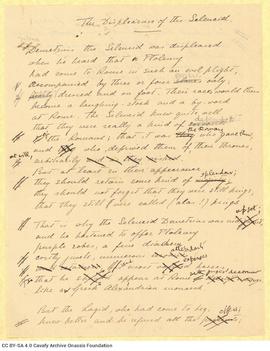 The Displeasure of the Seleucid.
Demetrius the Seleucid was displeased
when he heard that a Ptolemy
had come to Rome in such an evil plight,
Accompanied by three or four only,
dressed and on foot. Their race would then
become a laughing-stock and a by word
at Rome. The Seleucid knew quite well
that they were really a kind of
the Romans; that it was the Roman who gave
and who deprived them of their thrones,
arbitrarily
But at least in their appearance
they should retain some kind of splendour;
they should not forget that they were still kings
that they still (were called (alas!) kings
That is why the Seleucid Demetrius was upset;
and he hastened to offer Ptolemy
purple robes, a fine diadem,
costly jewels, numerous attendants
most
that he appear at Rome
like a Greek Alexandrian monarch
But the Lagid, who had come to beg,
knew better and he refused all the offers;
CC BY-SA 4.0 Cavafy Archive Onassis Foundation